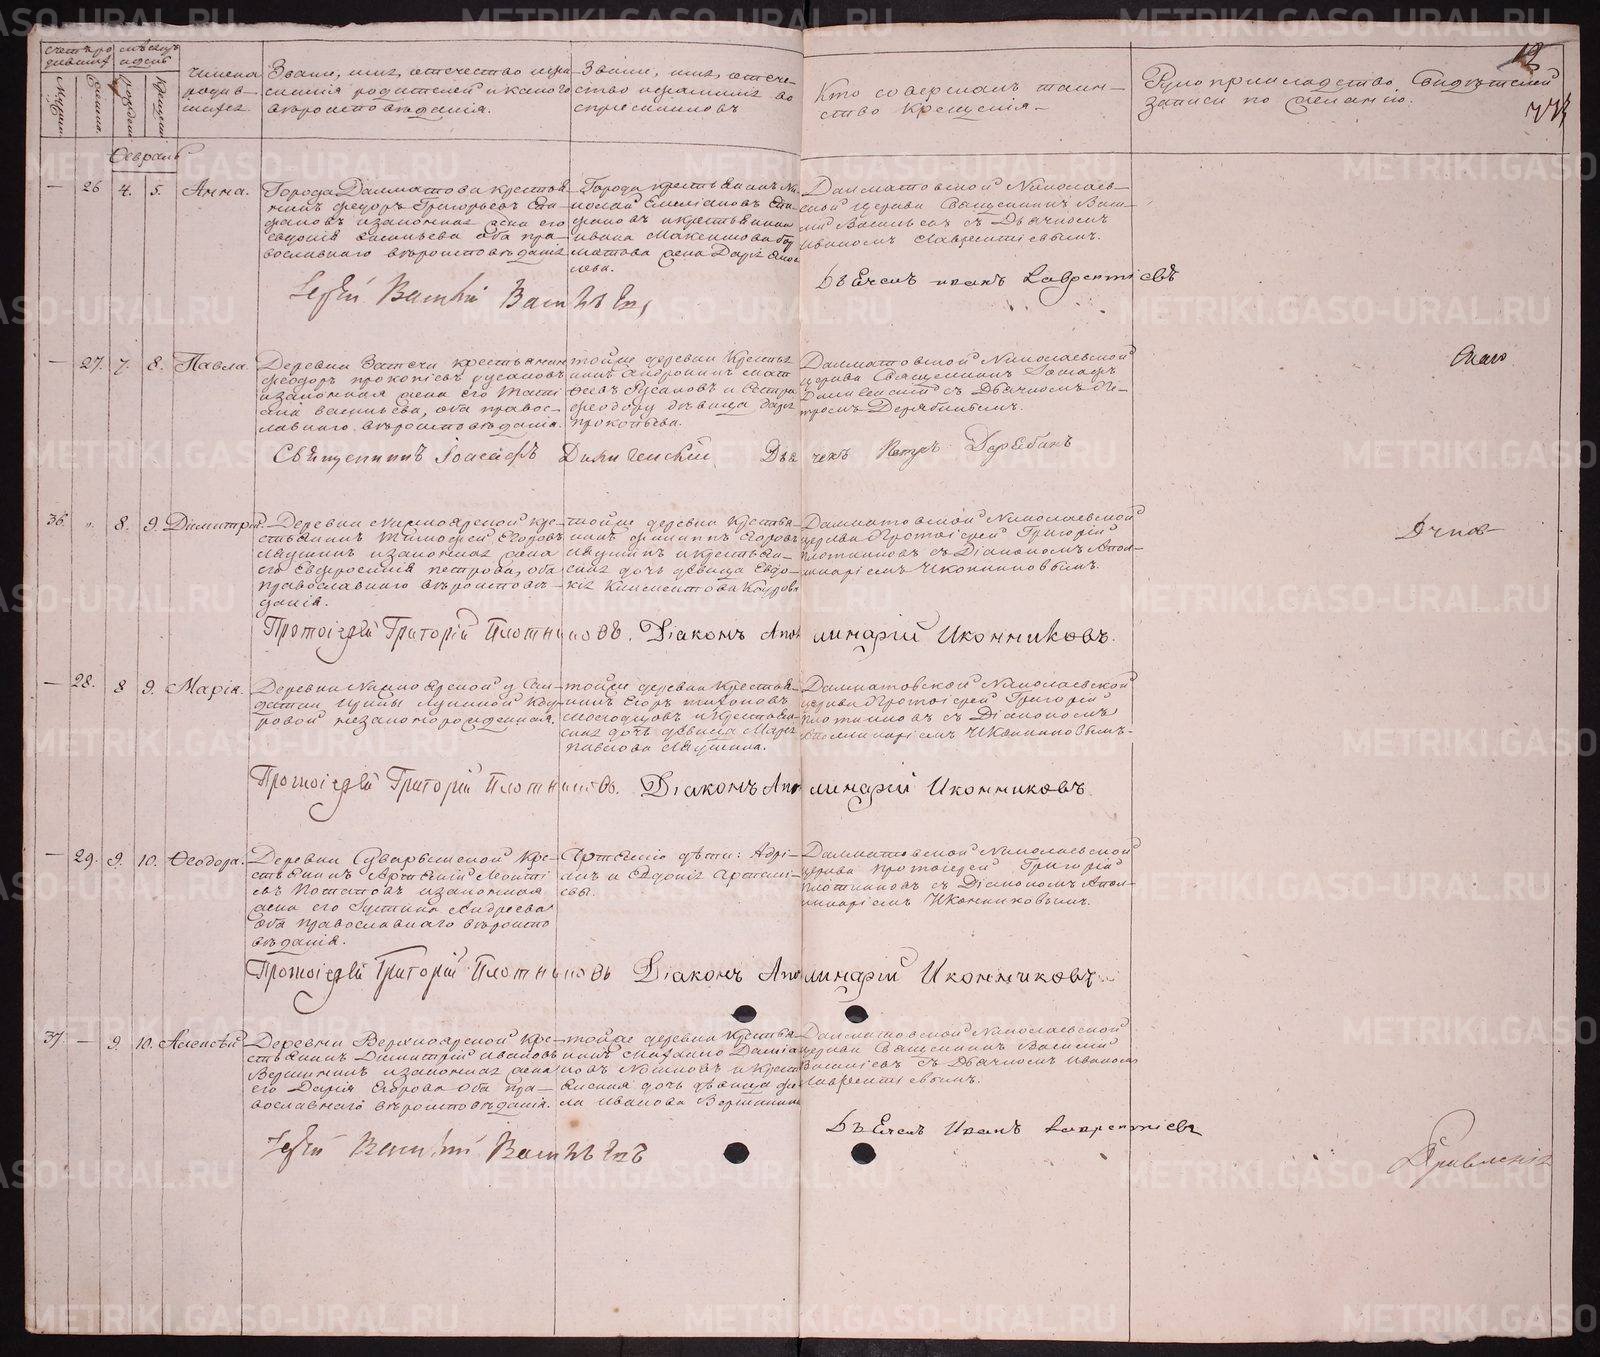 12
счетъ ро
дившихся
мѣсяцъ
и день
Мужеск.
Женска.
Рожденія
Крещенія
Имена
родив-
шихся
Званіе, имя, отечество и фа-
милія родителей и какого
вѣроисповѣданія.
Званіе, имя, отече-
ство и фамилія во
спріемниковъ
Кто совершалъ таин-
ство крещенія
Рукоприкладство свидѣтелей
записи по желанію.
Февраль
— 26 4. 5. Анна.
Города Далматова крестья
нинъ Федоръ Григорьевъ
и законная жена его
Евдокія Васильева оба пра-
вославнаго вѣроисповѣданія
Города крестьянинъ Ни
колай Емеліановъ
и крестьянина
Ивана Максимова
жена Дарья
Далматовской Николаев-
ской церкви Священникъ Васи
лій Васильевъ съ Дьячкомъ
Иваномъ Лаврентіевымъ.
Іерей Василій Васильевъ
Дьячекъ Иванъ Лаврентіевъ
— 27. 7. 8. Павла.
Деревни Затечи крестьянин
Феодоръ Прокопіевъ Русановъ
и законная жена его Тати
ана Васильева, оба правос-
лавнаго вѣроисповѣданія.
тойже деревни Крестья
нинъ Андроникъ Мат
ѳеевъ Русановъ и
Феодору дѣвица Дарья
Прокопьева.
Далматовской Николаевской
церкви Священникъ Іосифъ
съ Дьячкомъ Пе-
тромъ Дерябинымъ.
Священникъ Іосифъ
Дьячекъ Петръ Дерябинъ
36. „ 8. 9. Димитрій.
Деревни Нижнеярской кре-
стьянинъ Тимофей Егоровъ
Лягушинъ и законная жена
его Евфросинія Петрова, оба
православнаго вѣроисповѣ-
данія.
тойже деревни крестья-
нинъ Филиппъ Егоровъ
Лягушинъ и крестьян-
ская дочь дѣвица Евдо-
кія Климентова Коурова
Далматовской Николаевской
церкви Протоіерей Григорій
Плотниковъ съ Діакономъ Апол-
линаріемъ Иконниковымъ.
Протоіерей Григорій Плотниковъ. Діаконъ Аполлинарій Иконниковъ.
— 28. 8 9. Марія.
Деревни Нижнеярской у Сол-
датки Ирины Лукиной Коу-
ровой незаконорожденная.
тойже деревни Крестья-
нинъ Егоръ Тихоновъ
и Крестьян-
ская дочь дѣвица Марья
Павлова Лягушина.
Далматовской Николаевской
церкви Протоіерей Григорій
Плотниковъ съ Діакономъ
Аполлинаріемъ Иконниковымъ.
Протоіерей Григорій Плотниковъ. Діаконъ Аполлинарій Иконниковъ
— 29. 9. 10. Ѳеодора.
Деревни Суварышской Кре-
стьянинъ Артемій
евъ Потаповъ и законная
жена его Іустина Андреева
оба православнаго вѣроиспо
вѣданія.
дѣти: Адрі-
анъ и Евдокія Артемі-
евы.
Далматовской Николаевской
церкви Протоіерей Григорій
Плотниковъ съ Діакономъ Апол-
линаріемъ Иконниковымъ.
Протоіерей Григорій Плотниковъ Діаконъ Аполлинарій Иконниковъ.
37. — 9. 10. Алексѣй
Деревни Верхнеярской Кре-
стьянинъ Димитрій Ивановъ
Вершининъ и законная жена
его Дарія Егорова оба пра-
вославнаго вѣроисповѣданія.
тойже деревни Крестья
нинъ Михаило
и Кресть
янская дочь дѣвица
Иванова Вершинина
Далматовской Николаевской
церкви Священникъ Василій
Васильевъ съ Дьячкомъ Иваномъ
Лаврентіевымъ.
Іерей Василій Васильевъ
Дьячекъ Иванъ Лаврентіевъ
METRIKI.GASO-URAL.RU